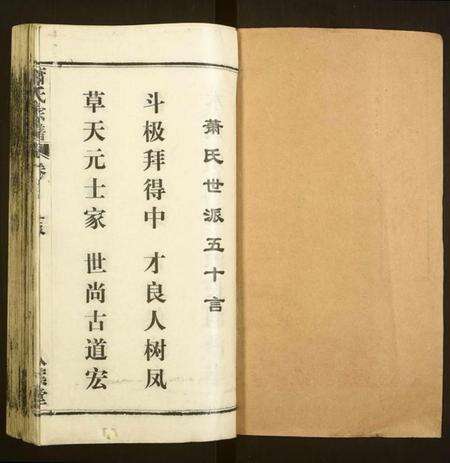 萧氏世派五十言
斗极拜得中 才良人树凤
草天元士家 世尚古道宏
萧氏宗谱